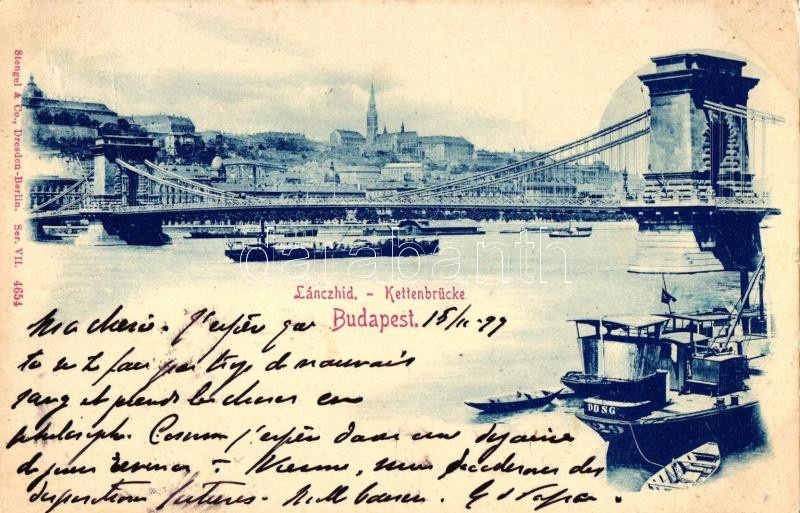 Stengel & Co., Dresden-Berlin. Ser. VII. 4654
darabanth
Lánczhid. - Kettenbrücke
Budapest. 15/11-99
DDSG
Ma chérie. J'espère que
tu ne te fais pas trop de mauvais
sang et prends les choses en
philosophe. Comme j'espère dans une dizaine
de jours revenir à Vienne, nous déciderons des
dispositions futures. Mille baisers.